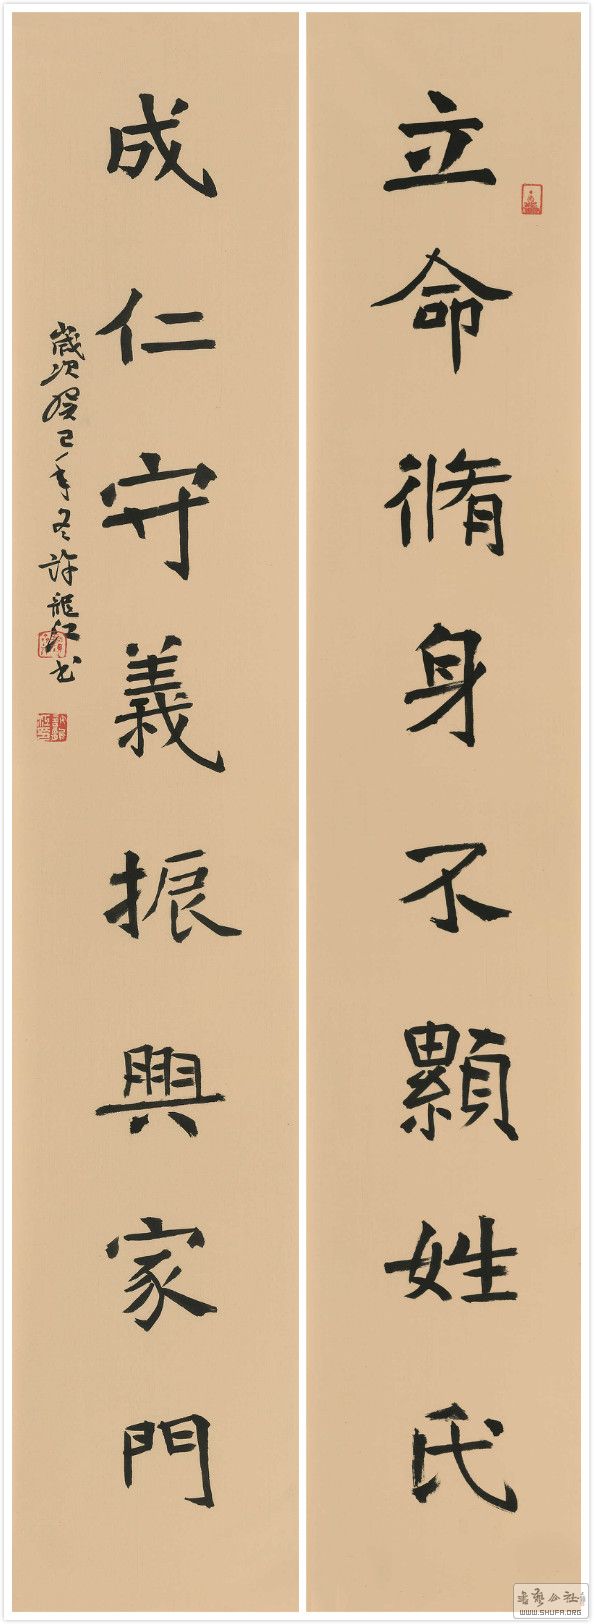 立命脩身不顯姓氏
成仁守義振興家門
歲次癸巳年冬許龍江書
書藝公社
WWW.SHUFA.ORG